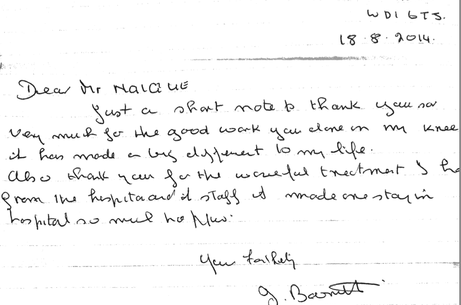 WD1 6TS.
18.8.2014.
Dear Mr
Just a short note to thank you so
very much for the good work you done on my knee
it has made a big different to my life.
Also thank you for the treatment I
from the hospital and it staff it made one stay in
hospital so much
J. Barrett